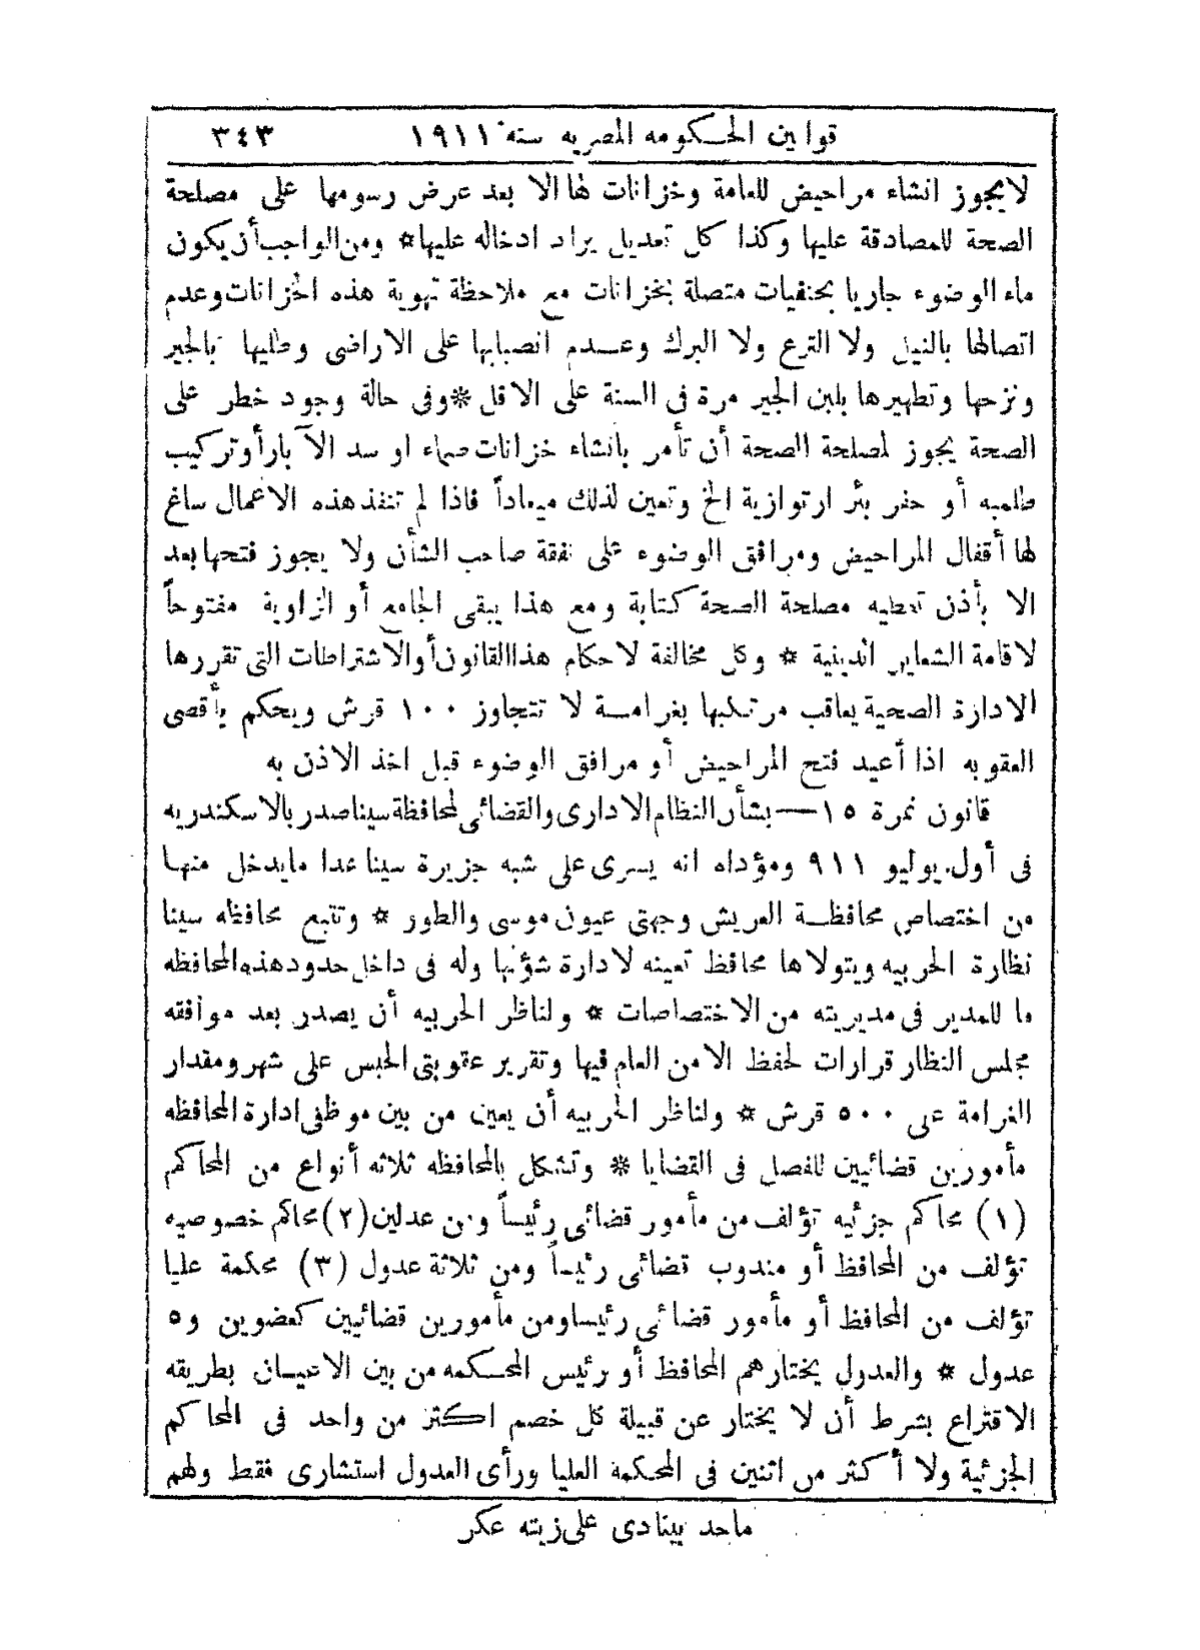 قوانين الحكومه المصريه سنة ١٩١١ ٣٤٣
لايجوز انشاء مراحيض للعامة وخزانات لها الا بعد عرض رسومها على مصلحة
الصحة للمصادقة عليها وكذا كل تعديل يراد ادخاله عليها * ومن الواجب أن يكون
ماء الوضوء جاريا بحنفيات متصلة بخزانات مع ملاحظة تهوية هذه الخزانات وعدم
اتصالها بالنيل ولا الترع ولا البرك وعدم انصبابها على الاراضى وطليها بالجير
ونزحها وتطهيرها بلبن الجير مرة فى السنة على الاقل * وفى حالة وجود خطر على
الصحة يجوز لمصلحة الصحة أن تأمر بانشاء خزانات صماء او سد الآبار أو تركيب
طلمبه أو حفر بئر ارتوازية الخ وتعين لذلك ميعاداً فاذا لم تنفذ هذه الاعمال ساغ
لها أقفال المراحيض ومرافق الوضوء على نفقة صاحب الشأن ولا يجوز فتحها بعد
الا بأذن تعطيه مصلحة الصحة كتابة ومع هذا يبقى الجامع أو الزاوية مفتوحاً
لاقامة الشعاير الدينية * وكل مخالفة لاحكام هذا القانون أو الاشتراطات التى تقررها
الادارة الصحية يعاقب مرتكبها بغرامة لا تتجاوز ١٠٠ قرش ويحكم بأقصى
العقوبه اذا أعيد فتح المراحيض أو مرافق الوضوء قبل اخذ الاذن به
قانون نمرة ١٥ — بشأن النظام الادارى والقضائى لمحافظة سينا صدر بالاسكندريه
فى أول يوليو ٩١١ ومؤداه انه يسرى على شبه جزيرة سينا عدا مايدخل منها
من اختصاص محافظة العريش وجهتى عيون موسى والطور * وتتبع محافظه سينا
نظارة الحربيه ويتولاها محافظ تعينه لادارة شؤنها وله فى داخل حدود هذه المحافظه
ما للمدير فى مديريته من الاختصاصات * ولناظر الحربيه أن يصدر بعد موافقه
مجلس النظار قرارات لحفظ الامن العام فيها وتقرير عقوبتى الحبس على شهر ومقدار
الغرامة عى ٥٠٠ قرش * ولناظر الحربيه أن يعين من بين موظفى ادارة المحافظه
مأمورين قضائيين للفصل فى القضايا * وتشكل بالمحافظه ثلاثه أنواع من المحاكم
(١) محاكم جزئيه تؤلف من مأمور قضائى رئيساً ومن عدلين (٢) محاكم خصوصيه
تؤلف من المحافظ أو مندوب قضائى رئيساً ومن ثلاثة عدول (٣) محكمة عليا
تؤلف من المحافظ أو مأمور قضائى رئيسا ومن مأمورين قضائيين كعضوين و ٥
عدول * والعدول يختارهم المحافظ أو رئيس المحكمه من بين الاعيان بطريقه
الاقتراع بشرط أن لا يختار عن قبيلة كل خصم اكثر من واحد فى المحاكم
الجزئية ولا أكثر من اثنين فى المحكمة العليا ورأى العدول استشارى فقط ولهم
ماحد بينادى على زيته عكر